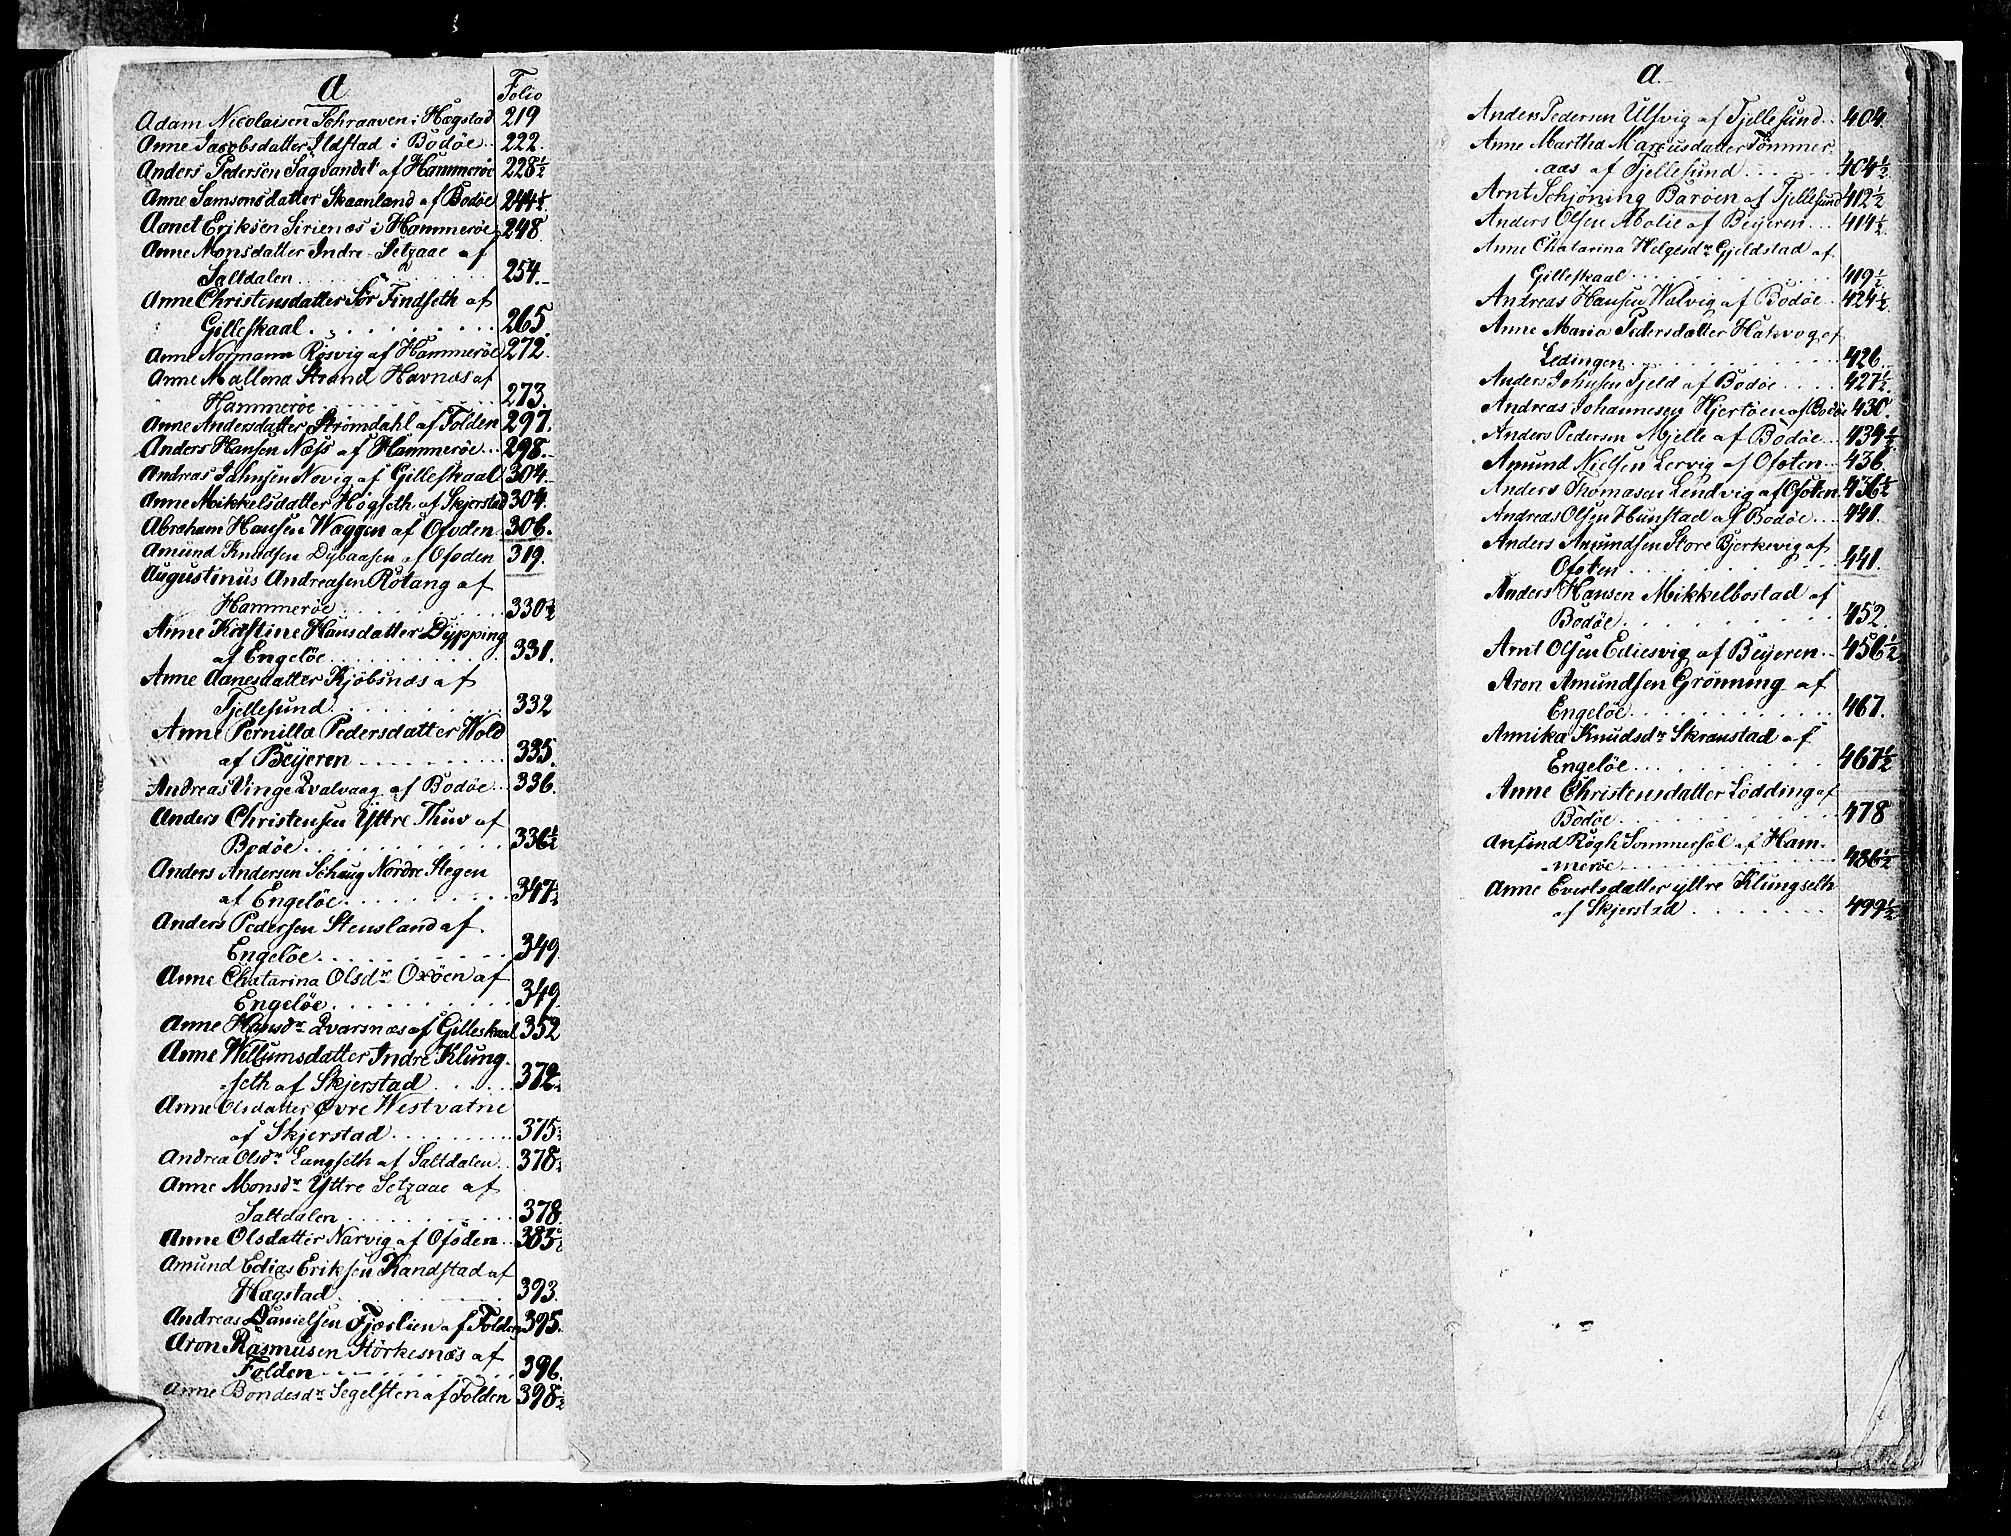 A
Folio
Adam Nicolaisen Schraaven i Hægstad 219
Anne Jacobsdatter Ildstad i Bodöe 222.
Anders Pedersen Sagvandet af Hammeröe 228½
Anne Samsonsdatter Skaanland af Bodöe 244½
Agnet Eriksen Sirienæs i Hammeröe 248
Anne Monsdatter Indre Setzaae af
Saltdalen 254.
Anne Christensdatter Sör Findseth af
Gilleskaal 265.
Anne Normann Rösvig af Hammeröe 272.
Anne Mallena Strand Havnæs af
Hammeröe 273.
Anne Andersdatter Strömdahl af Folden 297.
Anders Hansen Næss af Hammeröe 298.
Andreas Jahnsen Novig af Gilleskaal 304.
Anne Mikkelsdatter Högseth af Skjerstad 304.
Abraham Hansen Waggen af Ofoden 306.
Amund Knudsen Dybaasen af Ofoden 319.
Augustinus Andreasen Rotang af
Hammeröe 330½
Anne Kristine Hansdatter Dypping
af Engelöe 331.
Anne Aanesdatter Kjöbsnæs af
Tjellesund 332
Anne Pernilla Pedersdatter Wold
af Beyeren 335.
Andreas Vinge Qvalvaag af Bodöe 336.
Anders Christensen Yttre Thuv af
Bodöe 336½
Anders Andersen Schaug Nordre Stegen
af Engelöe 347½
Anders Pedersen Stensland af
Engelöe 349.
Anne Chatarina Olsdr Oxöen af
Engelöe 349.
Anne Hansdr Qvarsnæs af Gilleskaal 352
Anne Willumsdatter Indre Klung-
seth af Skjerstad 372½
Anne Olsdatter Øvre Westvatne
af Skjerstad 375½
Andrea Olsdr Langseth af Saltdalen 378½
Anne Monsdr Yttre Setzaae af
Saltdalen 378.
Anne Olsdatter Narvig af Ofoden 385½
Amund Edias Eriksen Kandstad af
Hægstad 393.
Andreas Danielsen Fjærlien af Folden 395.
Aron Rasmusen Störkesnæs af
Folden 396.
Anne Bondesdr Segelsten af Folden 398½
A.
Anders Pedersen Ulsvig af Tjellesund 404.
Anne Martha Marcusdatter Tömmer-
aas af Tjellesund 404½
Arnt Schjöning Baröen af Tjellesund 412½
Anders Olsen Molie af Beyeren 414½
Anne Chatarina Helgesdr Gjeldstad af
Gilleskaal 419½
Andreas Hansen Walvig af Bodöe 424½
Anne Maria Pedersdatter Hatsvog af
Ledingen 426.
Anders Johnsen Fjeld af Bodöe 427½
Andreas Johannesen Hjertöen af Bodöe 430.
Anders Pedersen Mjelle af Bodöe 434½
Amund Nielsen Lervig af Ofoten 436.
Anders Thomasen Lendvig af Ofoten 436½
Andreas Olsen Hunstad af Bodöe 441.
Anders Amundsen Store Bjerkevig af
Ofoten 441.
Anders Hansen Mikkelbostad af
Bodöe 452.
Arnt Olsen Ediesvig af Beyeren 456½
Aron Amundsen Grönning af
Engelöe 467.
Annika Knudsdr Skranstad af
Engelöe 467½
Anne Christensdatter Lödding af
Bodöe 478
Anfind Rögh Sommersel af Ham-
meröe 486½
Anne Evertsdatter yttre Klungseth
af Skjerstad 499½